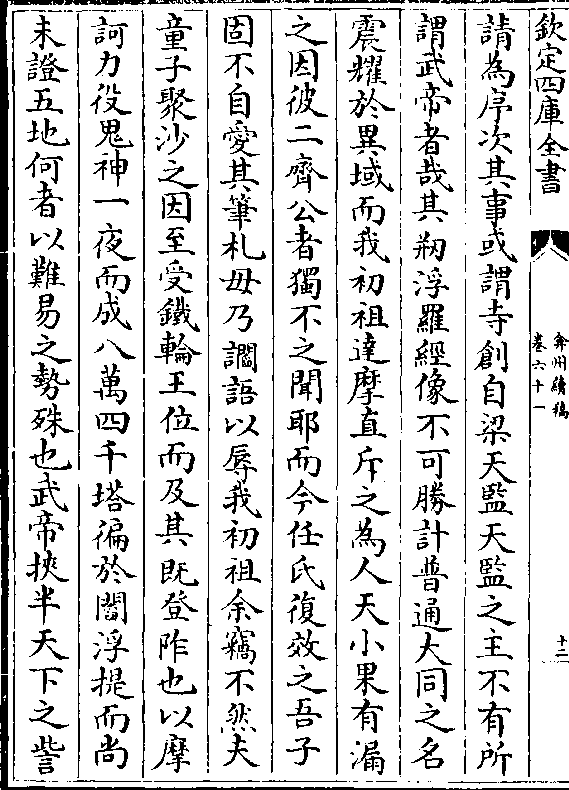 欽定四庫全書
弇州續稿
卷六十一
十二
請為序次其事或謂寺創自梁天監天監之主不有所
謂武帝者哉其剏浮羅經像不可勝計普通大同之名
震耀於異域而我初祖達摩直斥之為人天小果有漏
之因彼二齊公者獨不之聞耶而今任氏復效之吾子
固不自愛其筆札毋乃讕語以辱我初祖余竊不然夫
童子聚沙之因至受鐵輪王位而及其既登阼也以摩
訶力役鬼神一夜而成八萬四千塔徧於閻浮提而尚
未證五地何者以難易之勢殊也武帝挾半天下之訾